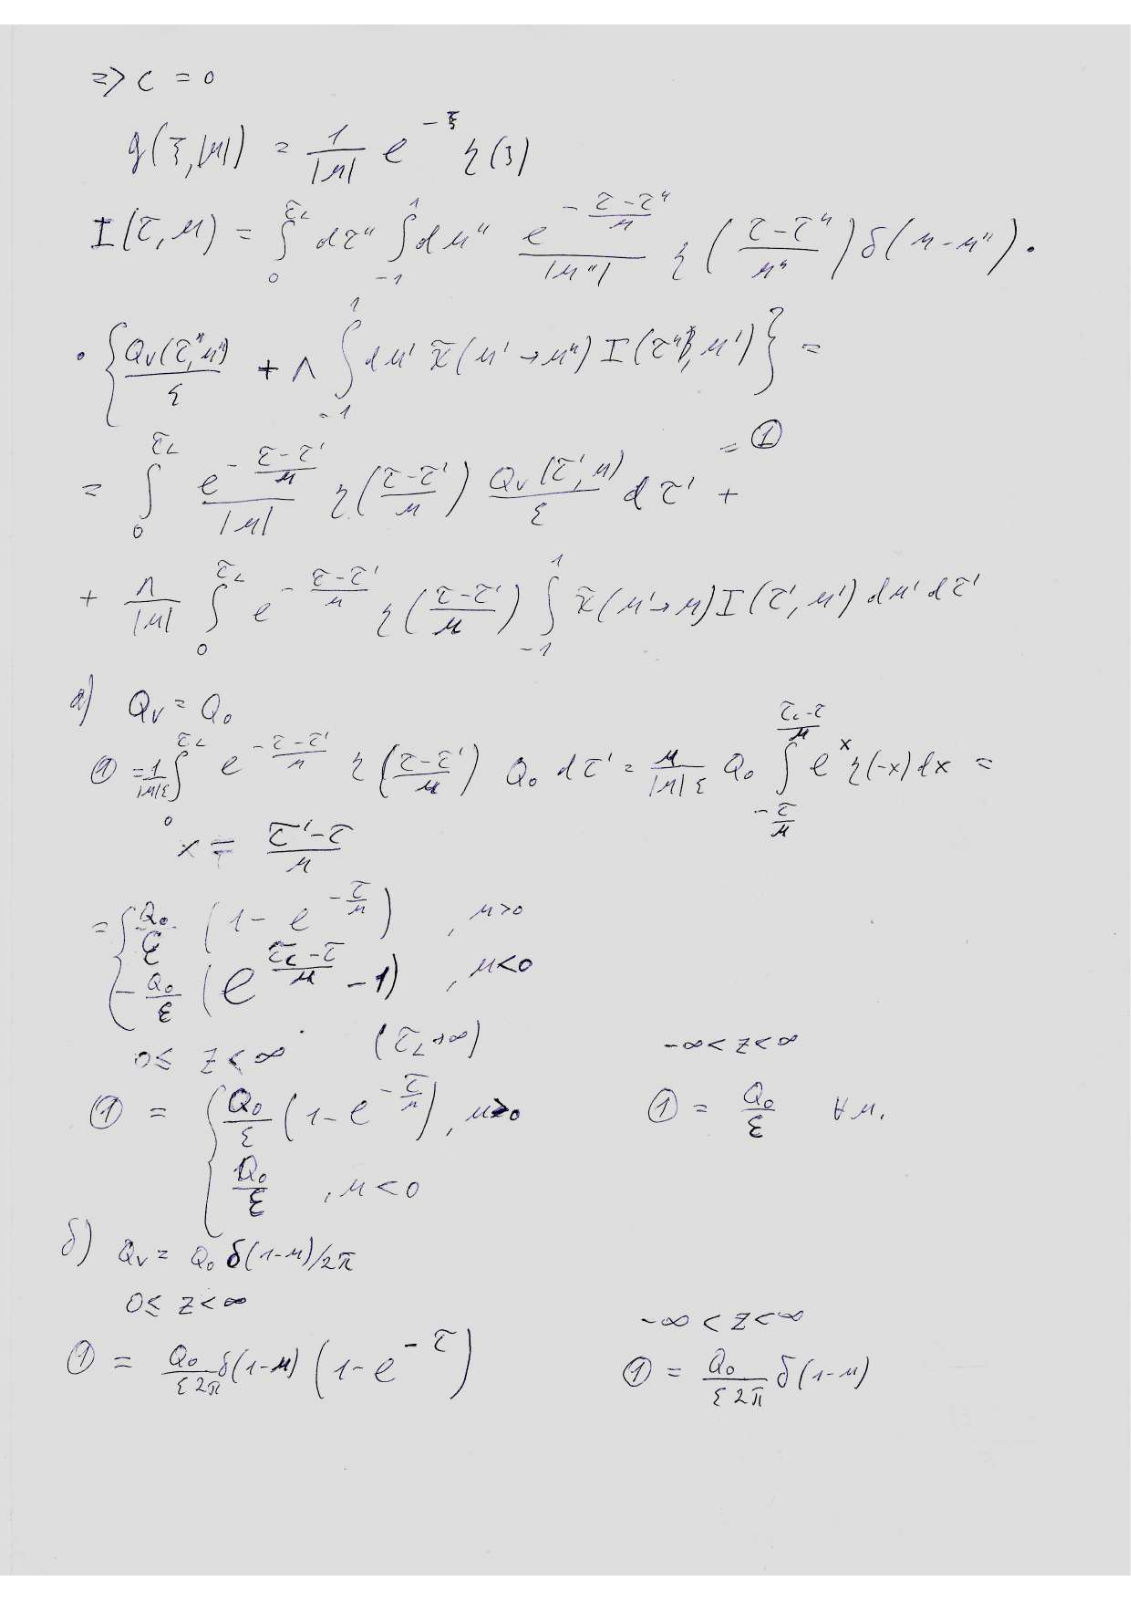 => C = 0
g(ξ,|μ|) = 1/|μ| e^{-ξ} η(ξ)
I(τ,μ) = ∫_0^{τ_L} dτ" ∫_{-1}^{1} dμ" e^{-(τ-τ")/μ}/|μ"| η((τ-τ")/μ") δ(μ-μ") ·
· {Q_v(τ",μ")/ε + Λ ∫_{-1}^{1} dμ' x̃(μ'→μ") I(τ",μ')} =
= ①
= ∫_0^{τ_L} e^{-(τ-τ')/μ}/|μ| η((τ-τ')/μ) Q_v(τ',μ)/ε dτ' +
+ Λ/|μ| ∫_0^{τ_L} e^{-(τ-τ')/μ} η((τ-τ')/μ) ∫_{-1}^{1} x̃(μ'→μ) I(τ',μ') dμ' dτ'
а) Q_v = Q_0
① = 1/(|μ|ε) ∫_0^{τ_L} e^{-(τ-τ')/μ} η((τ-τ')/μ) Q_0 dτ' = μ/(|μ|ε) Q_0 ∫_{-τ/μ}^{(τ_L-τ)/μ} e^x η(-x) dx =
x = (τ'-τ)/μ
= { Q_0/ε (1 - e^{-τ/μ}) , μ>0
-Q_0/ε (e^{(τ_L-τ)/μ} - 1) , μ<0
0≤ z < ∞ (τ_L→∞) -∞ < z < ∞
① = { Q_0/ε (1 - e^{-τ/μ}), μ>0 ① = Q_0/ε ∀μ.
Q_0/ε , μ<0
б) Q_v = Q_0 δ(1-μ)/2π
0≤ z < ∞ -∞ < z < ∞
① = Q_0/(ε2π) δ(1-μ) (1 - e^{-τ}) ① = Q_0/(ε2π) δ(1-μ)